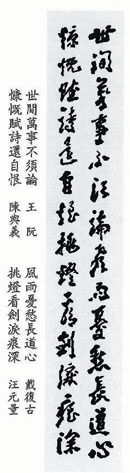 世間萬事不須論風雨憂愁長道心
慷慨賦詩還自恨挑燈看劍淚痕深
世間萬事不須論 王阮 風雨憂愁長道心 戴復古
慷慨賦詩還自恨 陳與義 挑燈看劍淚痕深 汪元量